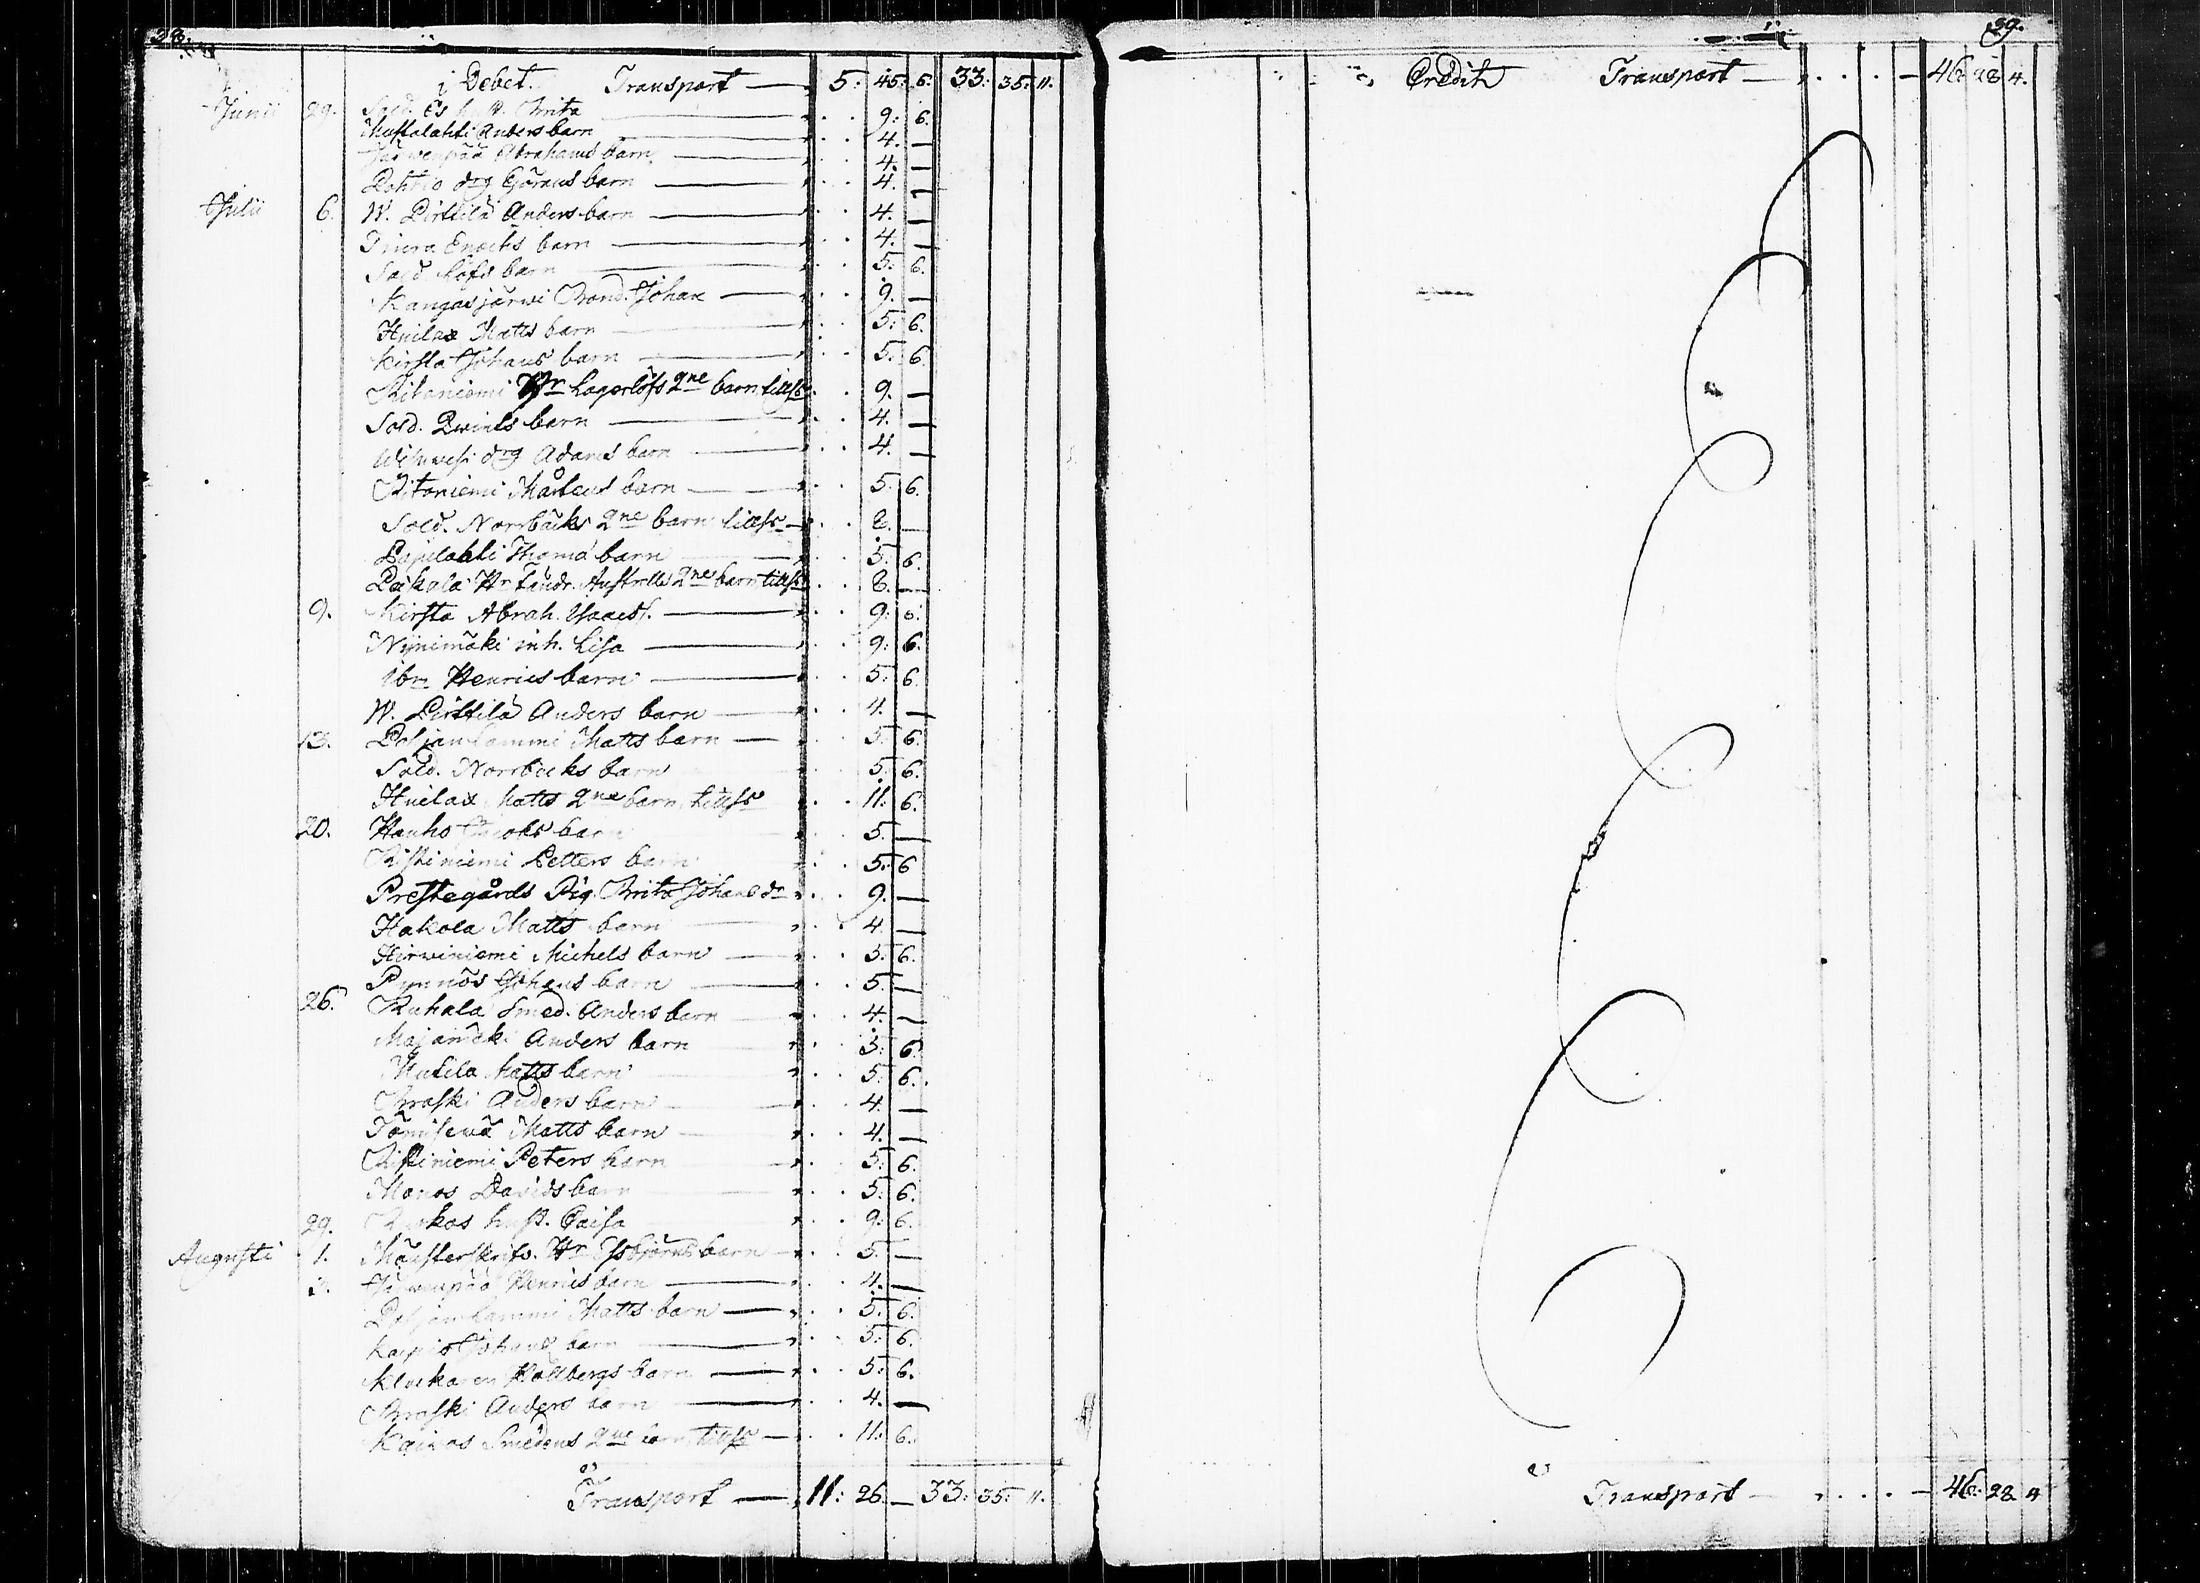 28.
i Debet. Transport — 5: 45: 6. 33: 35: 11.
Junii 29. Sold. Brita — 9: 6.
Mustalahti Anders barn — 4. —
Järwenpää Abrahams barn — 4. —
Pohto drg Görans barn — 4. —
Julii 6. W. Pirttilä Anders barn — 4. —
Enochs barn — 4. —
Sold. Löfs barn — 5: 6.
Kangasjärwi Bond. Johan — 9. —
Huilax Matts barn — 5: 6.
Kirsta Johans barn — 5: 6.
Ritaniemi Hr Lagerlöfs 2ne barn tillsr 9. —
Sold. Qwints barn — 4. —
drg Adams barn — 4. —
Ritaniemi Mårtens barn — 5. 6.
Sold. Norrbäcks 2ne barn tillsr — 8. —
Thomæ barn — 5: 6.
Hr 2ne barn tillsr 8. —
9. Kirsta Abrah. Isacss. — 9: 6.
Nynimäki inh. Lisa — 9: 6.
ibm Henrics barn — 5: 6.
W. Pirttilä Anders barn — 4. —
13. Pohjanlammi Matts barn — 5. 6.
Sold. Norrbäcks barn 5: 6.
Huilax Matts 2ne barn tillsr 11: 6.
20. Hauho Jacobs barn 5. —
Ristiniemi Petters barn 5: 6
Prestegårds Pig. Brita Johansdr 9. —
Hakola Matts barn 4. —
Hirwiniemi Michels barn — 5: 6.
Pynnös Johans barn — 5. —
26. Ruhala Smed. Anders barn — 4. —
Anders barn 5: 6.
Mutila Matts barn 5: 6.
Braski Anders barn — 4. —
Tömisewä Matts barn — 4. —
Ristiniemi Peters barn 5: 6.
Monos Davids barn 5: 6.
29. hust. Caisa 9: 6.
Augusti 1. Mönsterskrifv. Hr barn — 5. —
3. Järwenpää Henrics barn — 4. —
Pohjanlammi Matts barn — 5: 6.
Johans barn — 5: 6.
Klockaren Hallbergs barn — 5: 6.
Braski Anders barn — 4. —
Smedens 2ne barn tillsr — 11: 6.
Transport — 11: 26. — 33: 35: 11.
29.
Credit Transport — 46: 28 4.
Transport — 46: 28 4